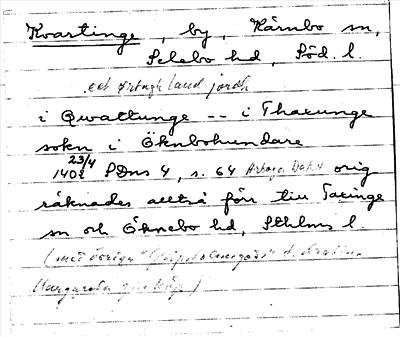 Kvartinge, by, Kärnbo sn,
Selebo hd, Söd. l.
ect ørtugh land jordh
i Qwattunge -- i Tharunge
sokn i Öknbohundare
23/4
1408 SDns 4, s. 64 Arboga orig
räknades alltså förr till Taringe
sn och Öknebo hd, Sthlms l.
(med övriga "Gripsholmsgods" t.
Margareta